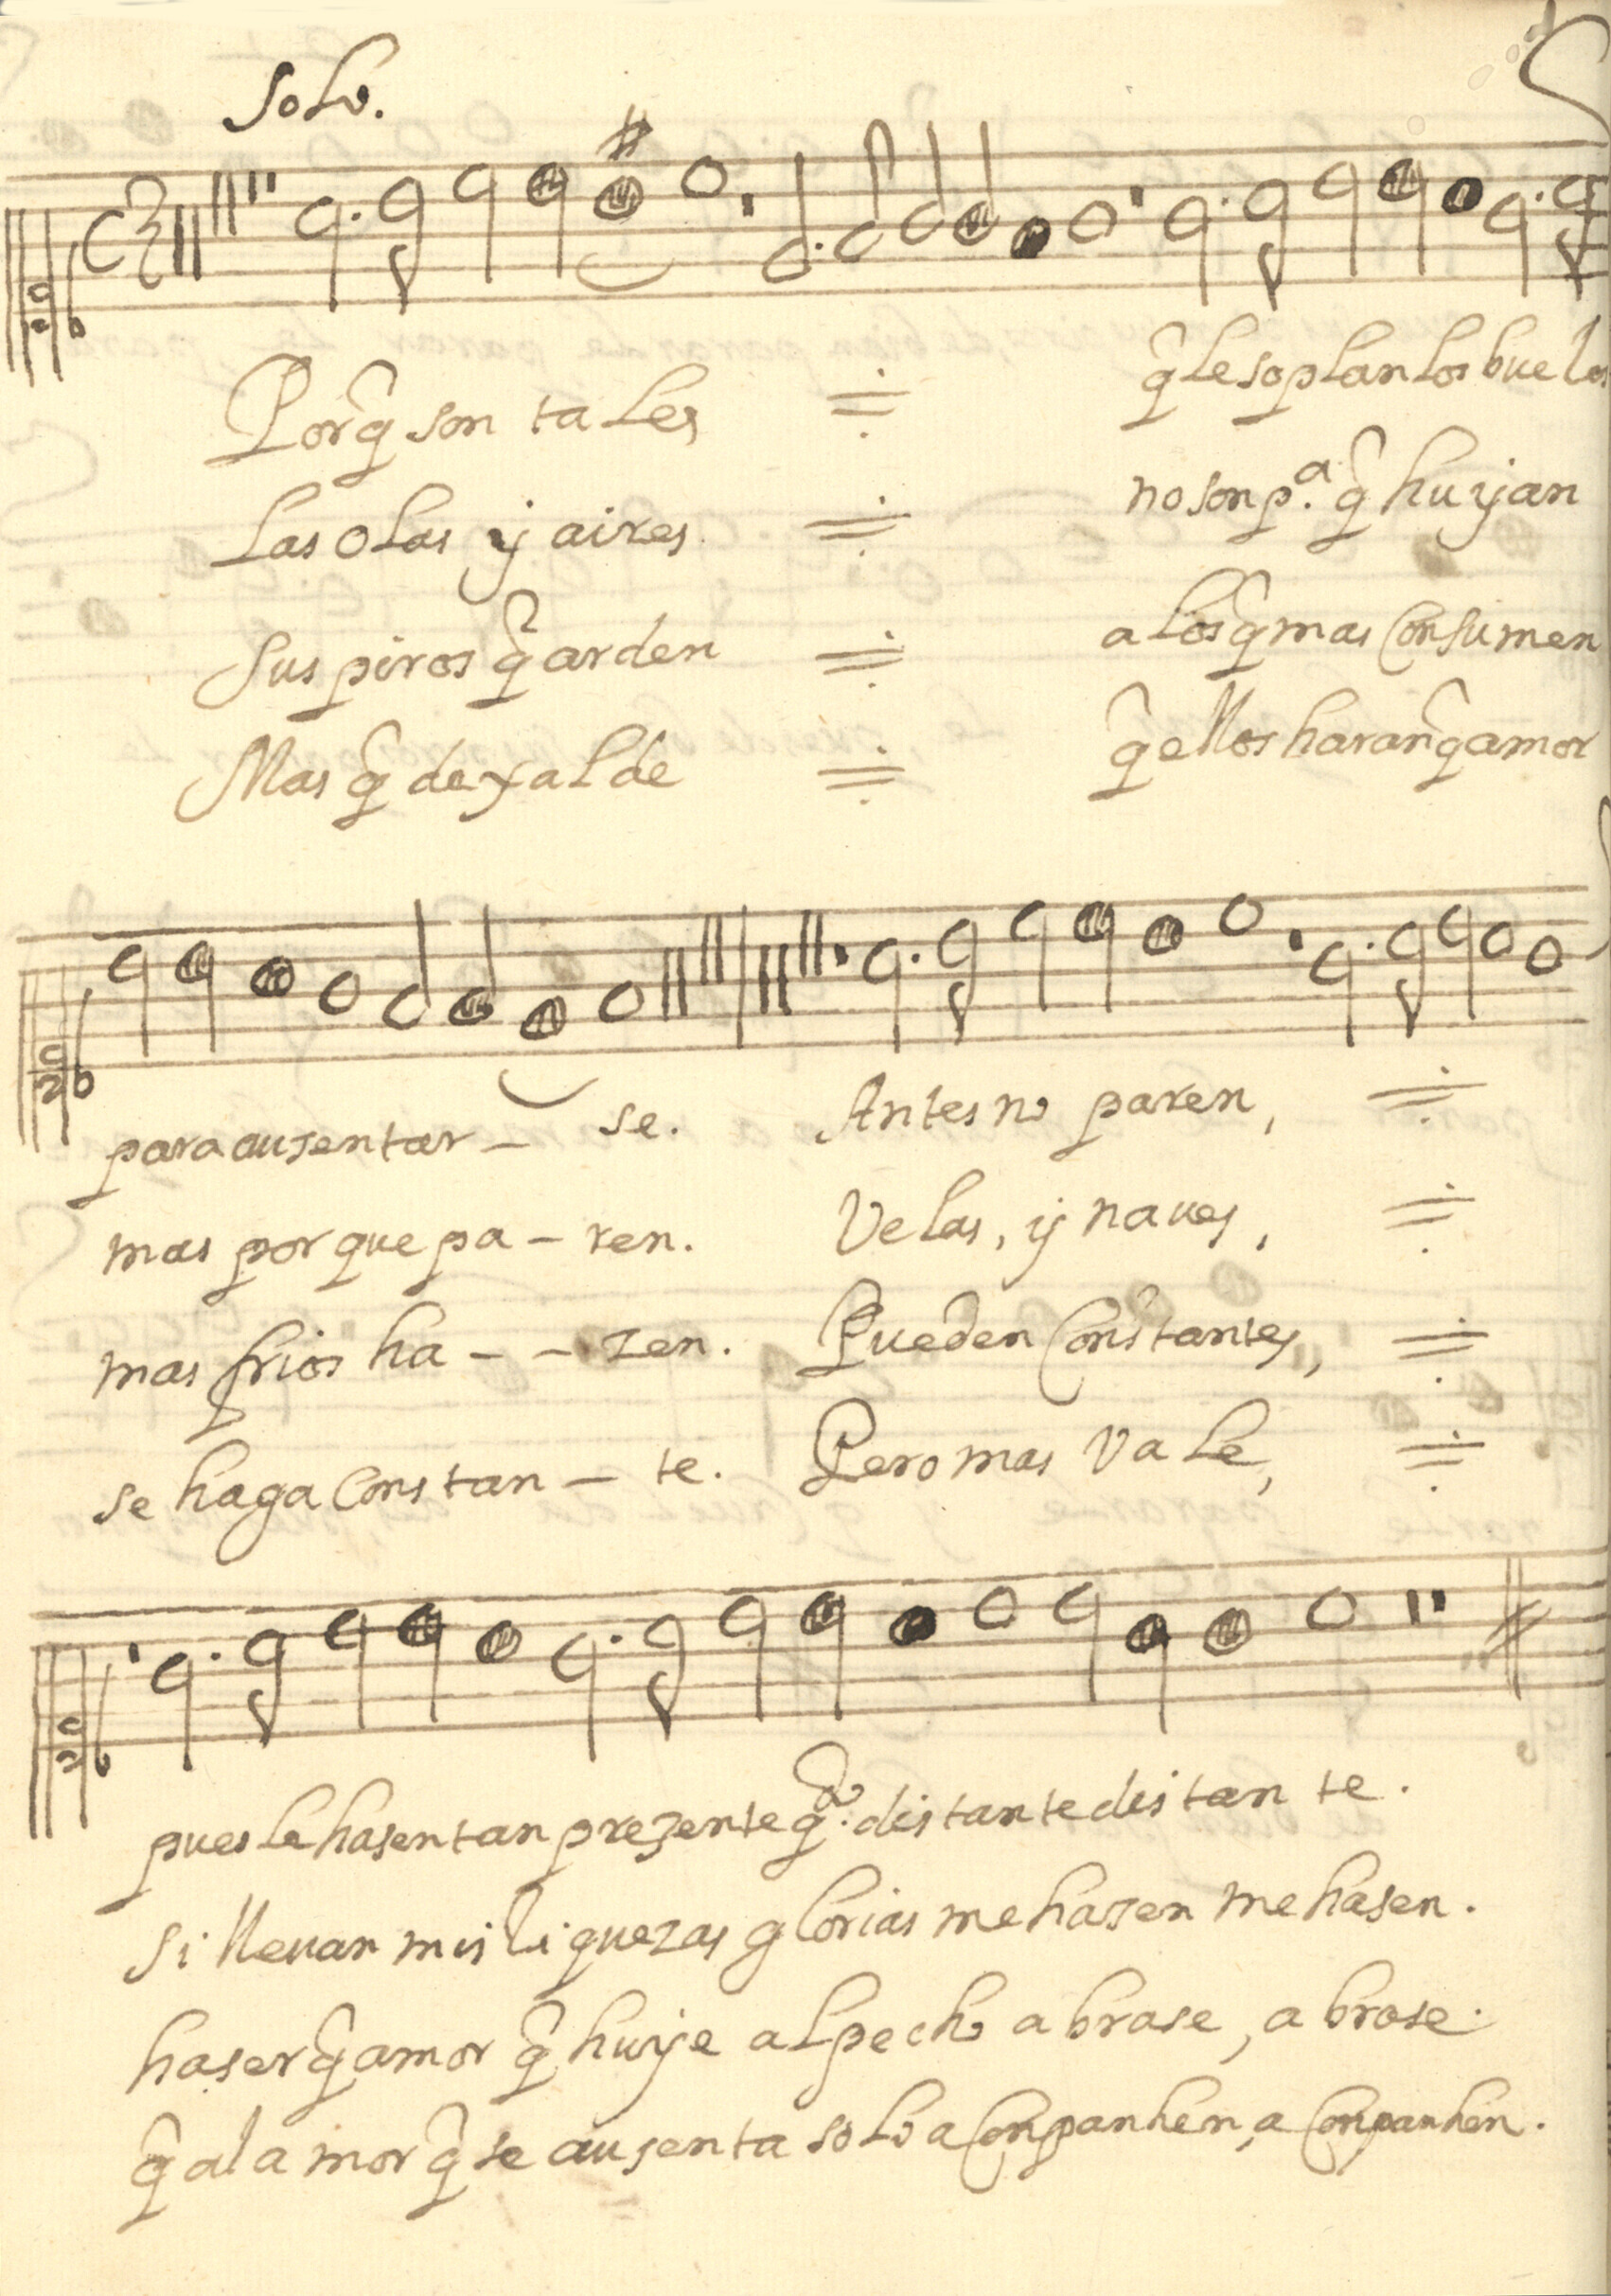 Solo.
Porq̃ son tales q̃ le soplan los buelos
las olas y aires no son p.ª q̃ huyan
Suspiros q̃ arden a los q̃ mas consumen
Mas q̃ dexalde q̃ ellos haran q̃ amor
para ausentar - se. Antes no paren,
mas por que pa - ren. Velas, y naues,
mas frios ha - - zen. Pueden constantes,
se haga constan - te. Pero mas vale,
pues le hasen tan prezente q.do distante distan te.
Si lleuan mis liquezas glorias me hazen me hasen.
haser q̃ amor q̃ huye al pecho abrase, abrase.
q̃ al amor q̃ se ausenta solo aconpanhen, aconpanhen.